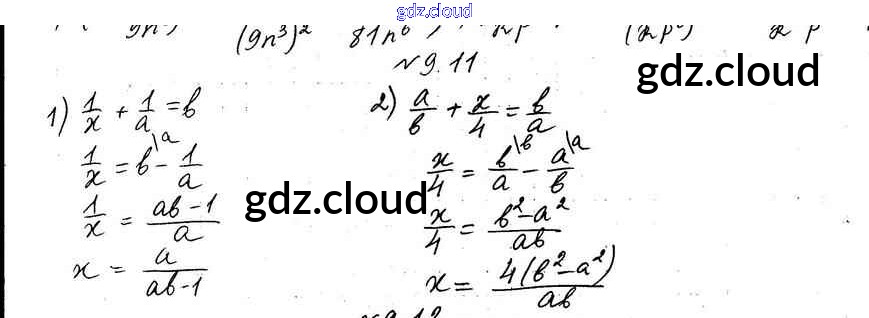 gdz.cloud
(9n³)² 81n⁶
№9.11.
gdz.cloud
1) 1/x + 1/a = b
1/x = b\a - 1/a
1/x = (ab-1)/a
x = a/(ab-1)
gdz.cloud
2) a/b + x/4 = b/a
x/4 = b\b/a - a\a/b
x/4 = (b²-a²)/ab
x = 4(b²-a²)/ab